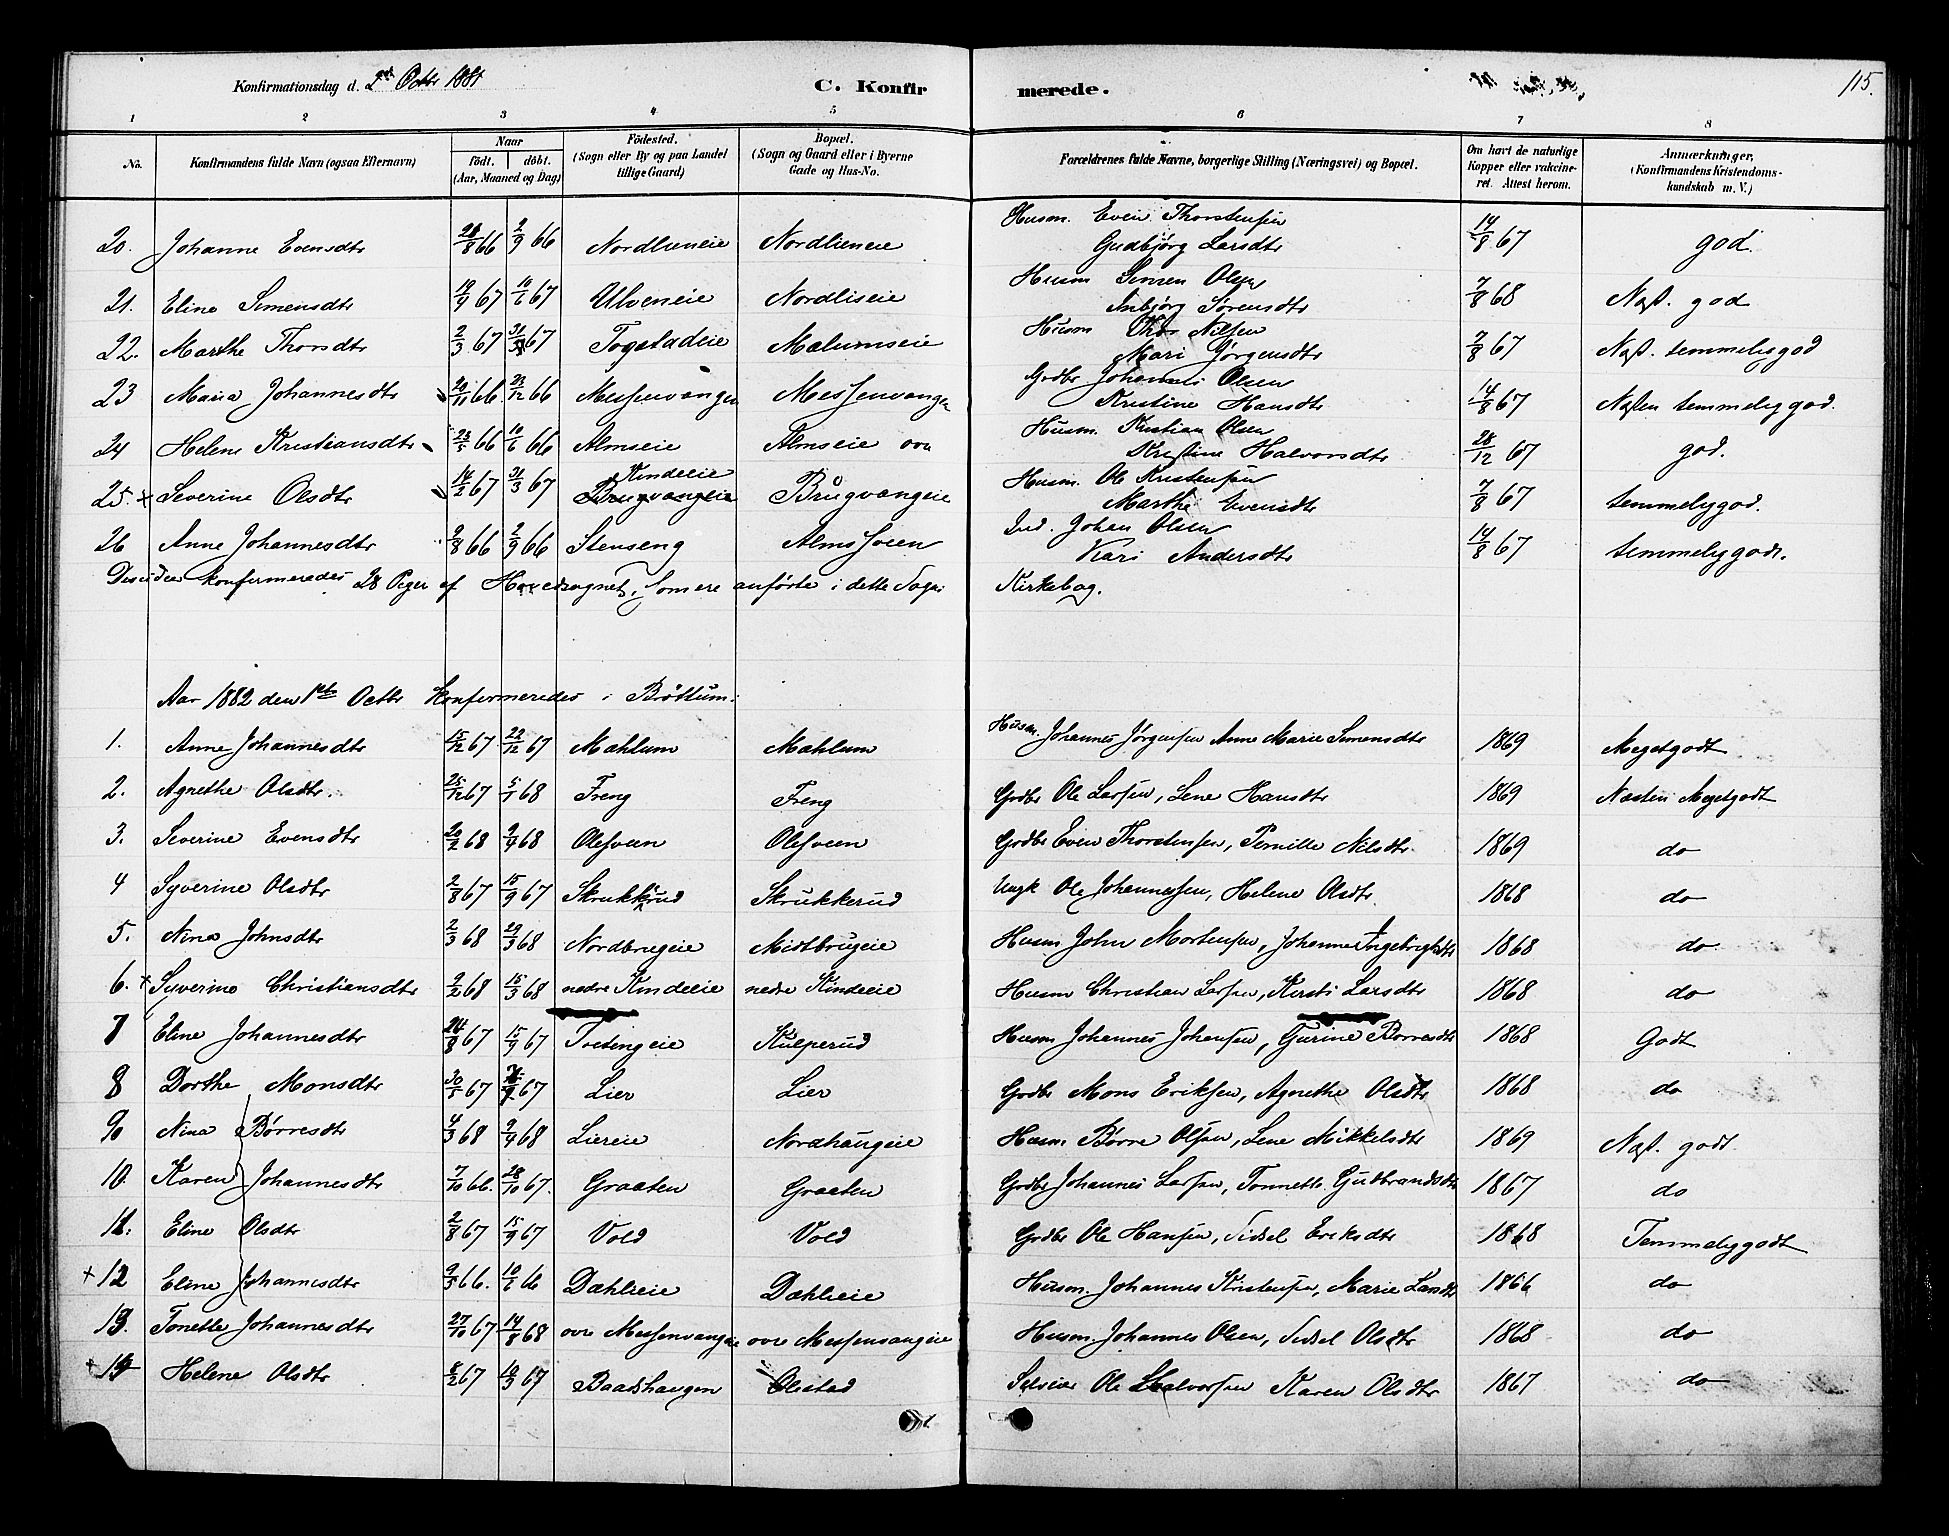 Konfirmationsdag d. 2den Octbr 1881 C. Konfirmerede. 115.
1 2 3 4 5 6 7 8
No. Konfirmandens fulde Navn (ogsaa Efternavn) Naar født. døbt. (Aar, Maaned og Dag) Födested. (Sogn eller By og paa Landet tillige Gaard) Bopæl. (Sogn og Gaard eller i Byerne Gade og Hus-No. Forældrenes fulde Navne, borgerlige Stilling (Næringsvei) og Bopæl. Om havt de naturlige Kopper eller vakcineret. Attest herom. Anmærkninger, (Konfirmandens Kristendomskundskab m. V.)
20. Johanne Evensdtr 28/8 66 2/9 66 Nordlieneie Nordlieneie Husm. Even Thorstensen Gudbjørg Larsdtr 14/8 67 god
21. Eline Simensdtr 67 67 Ulveneie Nordliseie Husm Simen Olsen Anbjørg Sørensdtr 7/8 68 Næst. god
22. Marthe Thorsdtr 2/3 67 31/3 67 Togstadeie Malumseie Husm Thor Nilsen Mari Jørgensdtr 7/8 67 Næst. temmelig god
23 Maria Johannesdtr 20/11 66. 23/12 66 Messenvangen Messenvangen Grdbr Johannes Olsen Kristine Hansdtr 14/8 67 Næsten temmelig god.
24 Helene Kristiansdtr 23/5 66 10/6 66 Almseie Almseie ovr Husm. Kristian Olsen Kristine Halvorsdtr 28/12 67 god.
25. + Severine Olsdtr 14/2 67 31/3 67 Kindeeie Brugvangeie Brugvangeie Husm. Ole Kristensen Marthe Evensdtr 7/8 67 temmelig god.
26 Anne Johannesdtr 9/8 66 2/9 66 Stenseng Almssveen Ind. Johan Olsen Kari Andersdtr 14/8 67 temmelig godt.
Desuden konfirmeredes 28 Piger af Hovedsognet, som ere anførte i dette Sogns Kirkebog.
Aar 1882 den 1ste Octbr konfirmeredes i Brøttum:
1. Anne Johannesdtr 15/12 67 22/12 67 Mahlum Mahlum Husm. Johannes Jørgensen Anne Marie Simensdtr 1869 Megetgodt
2. Agnethe Olsdtr. 25/12 67 5/1 68 Freng Freng Grdbr Ole Larsen, Lene Hansdtr 1869 Næsten Megetgodt
3. Severine Evensdtr 20/2 68 9/4 68 Olesveen Olesveen Grdbr Even Thorstensen, Pernille Nilsdtr. 1869 do
4 Syverine Olsdtr 2/8 67 15/9 67 Skrukkrud Skrukkerud Ungk Ole Johannessen, Helene Olsdtr. 1868 do
5. Nina Johnsdtr 2/3 68 29/3 68 Nordbrugeie Midtbrugeie Husm John Mortensen, Johanne Ingebrigtsdtr 1868 do
6. + Syverine Christiansdtr 9/2 68 15/3 68 nedre Kindeeie nedre Kindeeie Husm Christian Larsen, Kirsti Larsdtr 1868 do
7 Eline Johannesdtr 24/8 67 15/9 67 Tvetengeie Kulperud Husm Johannes Johansen, Gurine Børresdtr 1868 Godt
8 Dorthe Monsdtr 67 67 Lier Lier Grdbr Mons Eriksen, Agnethe Olsdtr 1868 do
9 Nina Børresdtr 4/3 68 9/4 68 Liereie Nordhaugeie Husm Børre Olsen, Lene Mikkelsdtr 1869 Næst. godt
10. Karen Johannesdtr 7/10 66. 28/10 67. Graaten Graaten Grdbr Johannes Larsen, Tonnette Gudbrandsdtr 1867 do
11. Eline Olsdtr 2/8 67 15/9 67 Vold Vold Grdbr Ole Hansen, Sidsel Eriksdtr 1868 Temmeliggodt
+ 12 Eline Johannesdtr 9/5 66. 10/6 66 Dæhlieie Dæhlieie Husm. Johannes Kristensen, Marie Larsdtr 1866 do
13. Tonette Johannesdtr 27/10 67 14/8 68 ovre Messenvangeie ovre Messenvangeie Husm. Johannes Olsen, Sidsel Olsdtr 1868 do
+ 14 Helene Olsdtr 8/2 67 10/3 67 Baadshaugen Olestad Selveier Ole Halvorsen Karen Olsdtr 1867 do